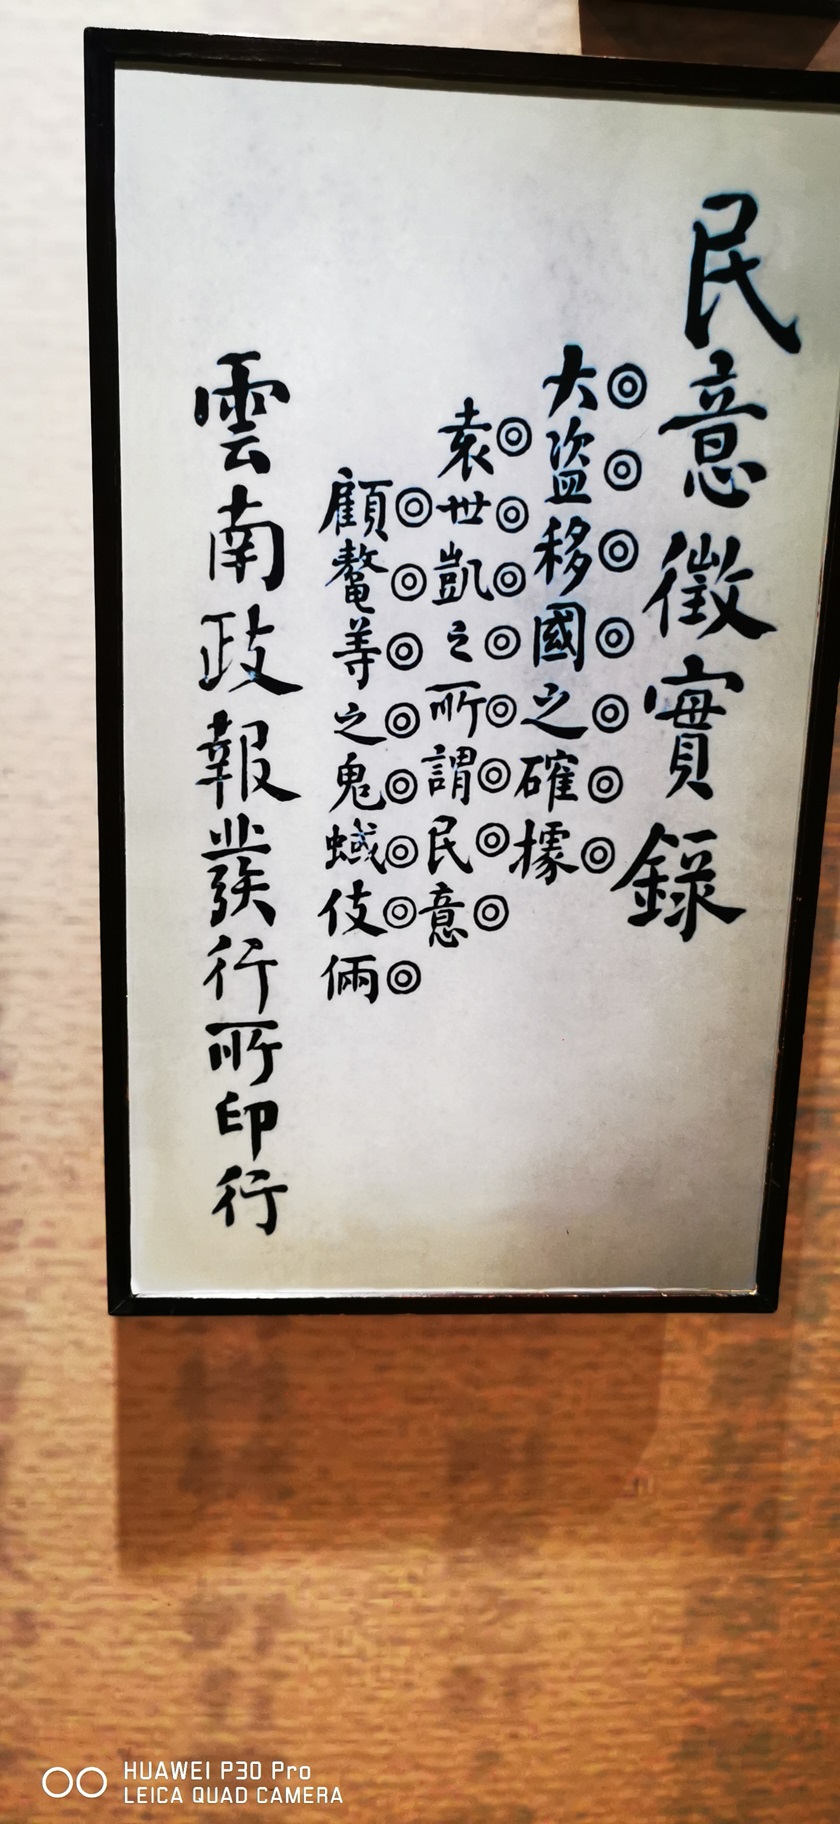 民意徵實錄
大盜移國之確據
袁世凱之所謂民意
顧鰲等之鬼蜮伎倆
雲南政報發行所印行
HUAWEI P30 Pro
LEICA QUAD CAMERA